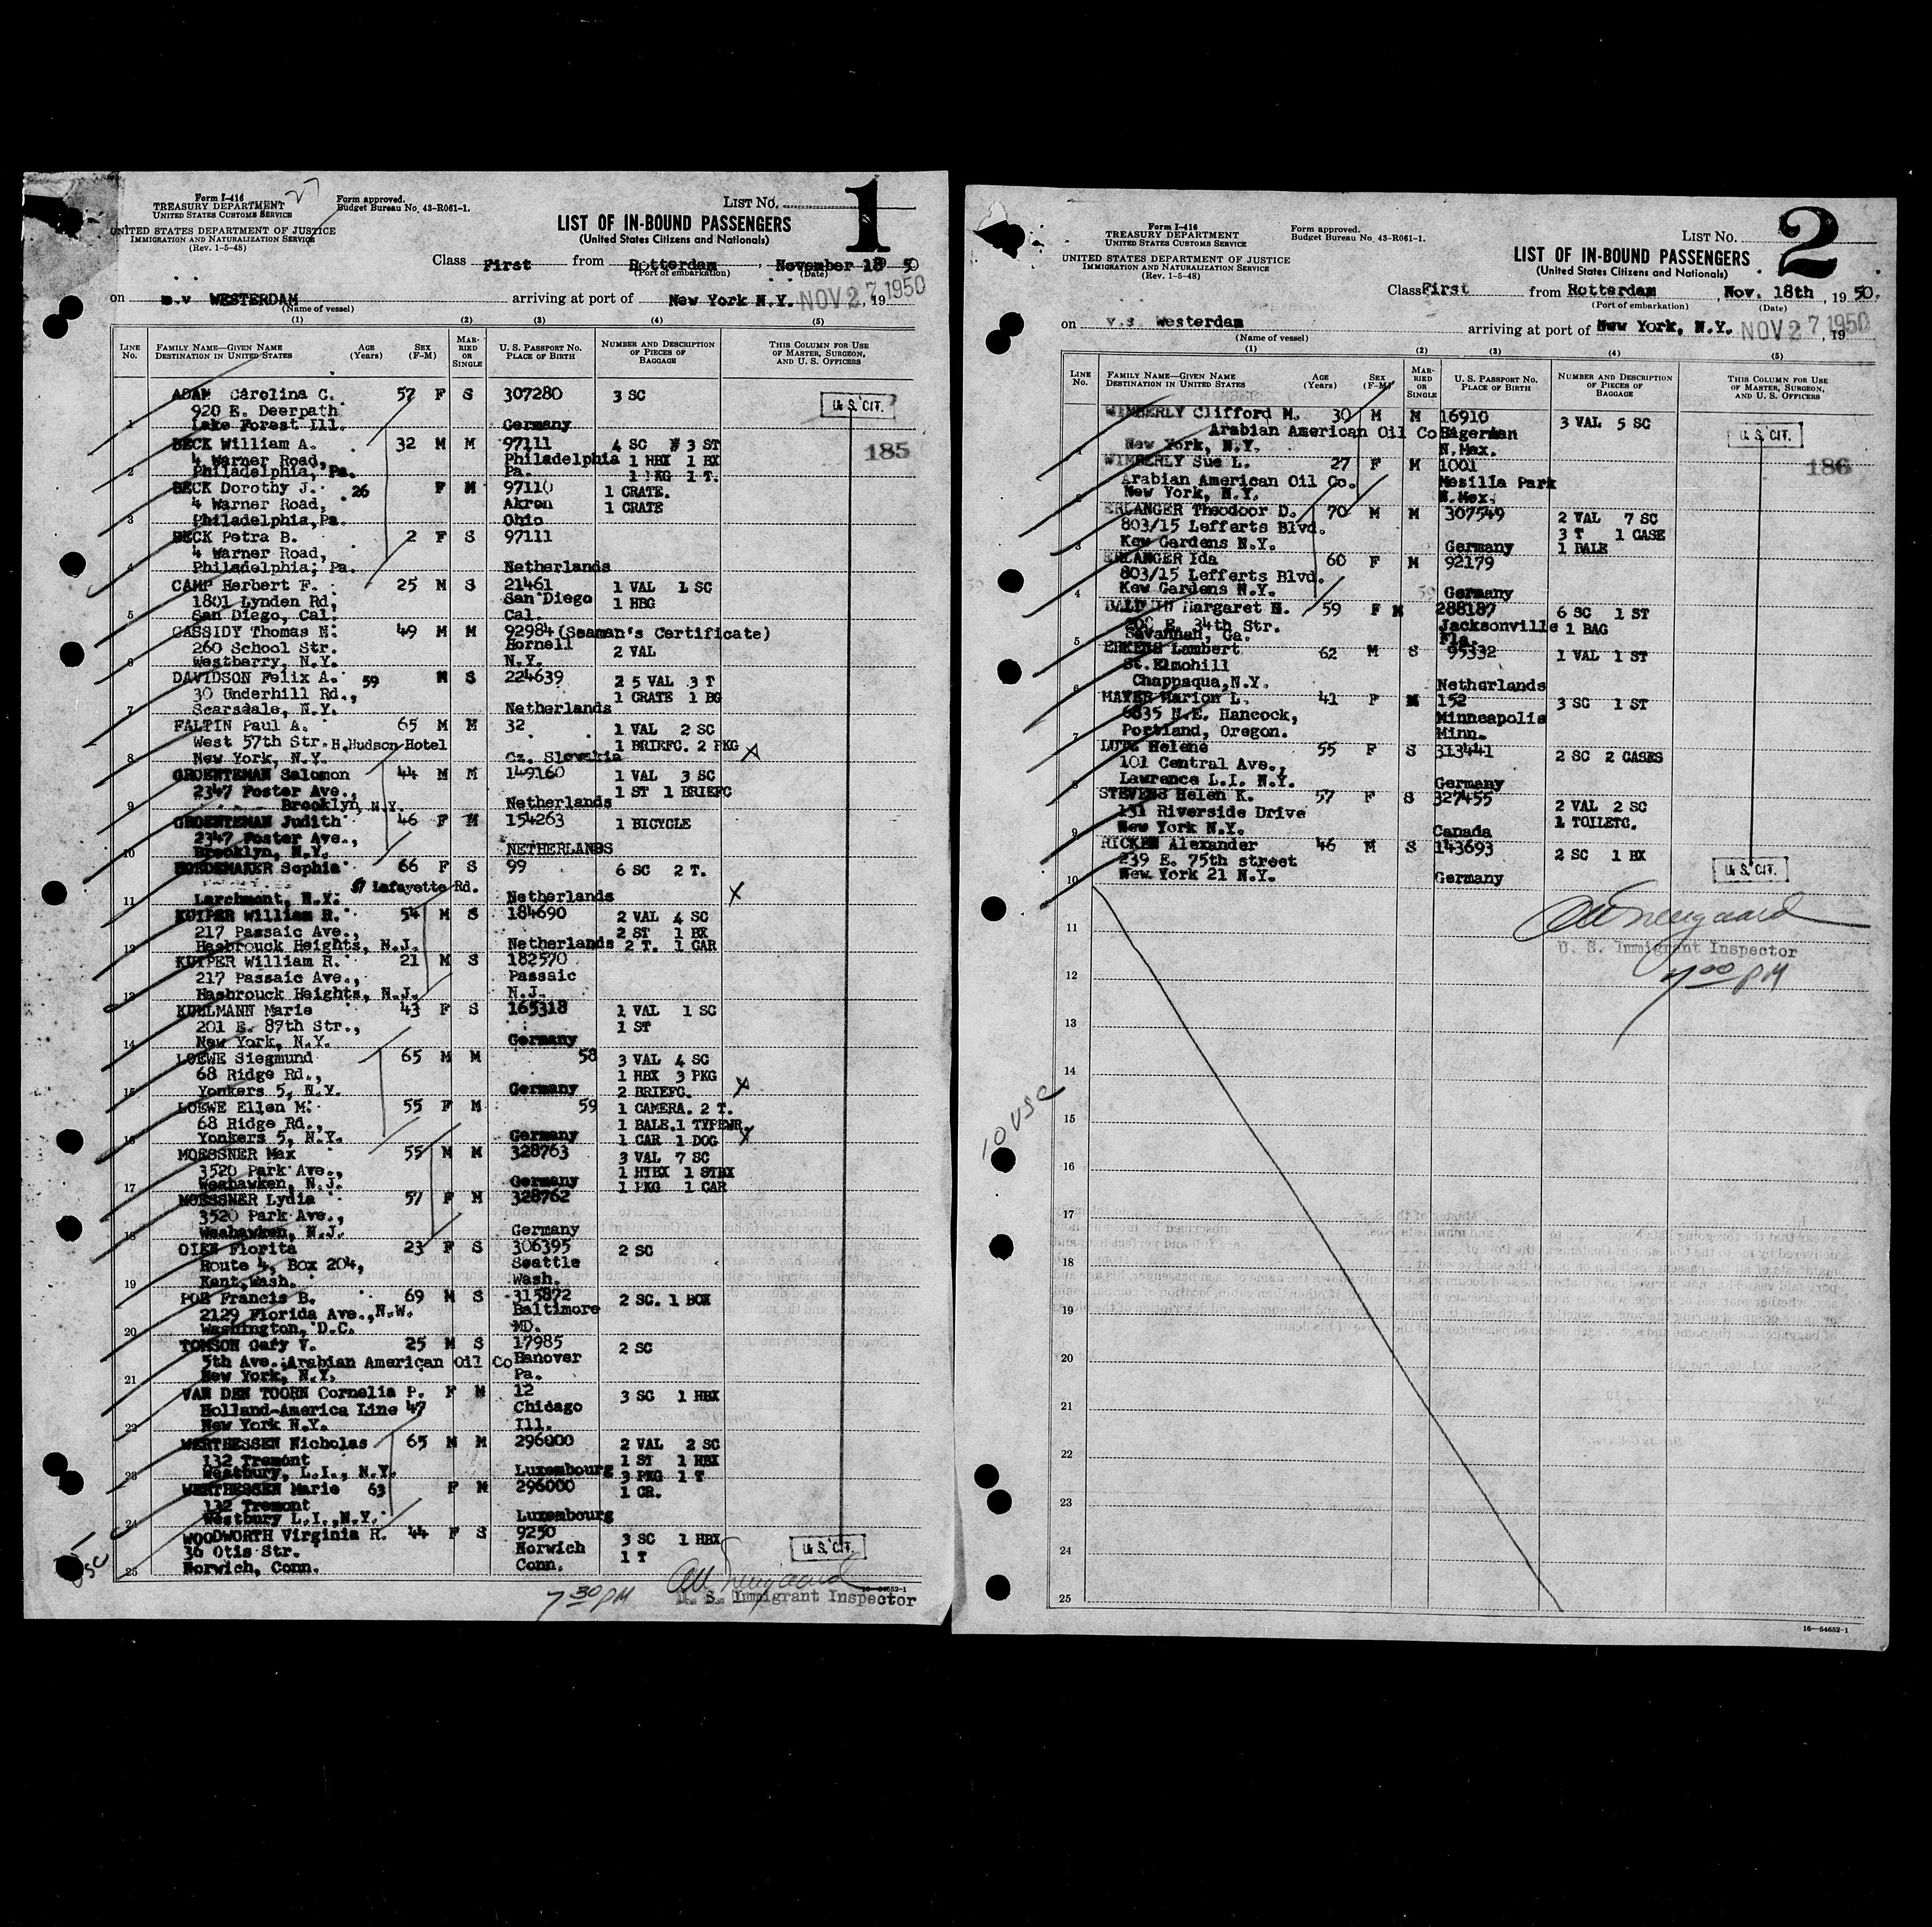 Form I-416
TREASURY DEPARTMENT
UNITED STATES CUSTOMS SERVICE
UNITED STATES DEPARTMENT OF JUSTICE
IMMIGRATION AND NATURALIZATION SERVICE
(Rev. 1-5-48)
27
Form approved.
Budget Bureau No. 43-R061-1.
LIST NO. 1
LIST OF IN-BOUND PASSENGERS
(United States Citizens and Nationals)
Class First from Rotterdam, November 18 50
(Port of embarkation) (Date)
on m.v WESTERDAM arriving at port of New York N.Y. NOV 27 1950, 19
(Name of vessel)
(1) (2) (3) (4) (5)
LINE No. FAMILY NAME—GIVEN NAME DESTINATION IN UNITED STATES AGE (Years) SEX (F-M) MARRIED OR SINGLE U. S. PASSPORT NO. PLACE OF BIRTH NUMBER AND DESCRIPTION OF PIECES OF BAGGAGE THIS COLUMN FOR USE OF MASTER, SURGEON, AND U. S. OFFICERS
ADAM Carolina C. 57 F S 307280 3 SC
920 E. Deerpath U.S. CIT.
1 Lake Forest Ill. Germany
BECK William A. 32 M M 97111 4 SC # 3 ST 185
4 Warner Road, Philadelphia 1 HBX 1 BX
2 Philadelphia, Pa. Pa. 1 PKG 1 T.
BECK Dorothy J. 26 F M 97110 1 CRATE.
4 Warner Road, Akron 1 CRATE
3 Philadelphia, Pa. Ohio
BECK Petra B. 2 F S 97111
4 Warner Road,
4 Philadelphia, Pa. Netherlands
CAMP Herbert F. 25 M S 21461 1 VAL 1 SC
1801 Lynden Rd, San Diego 1 HBG
5 San Diego, Cal. Cal.
CASSIDY Thomas N. 49 M M 92984 (Seaman's Certificate)
260 School Str. Hornell 2 VAL
6 Westberry, N.Y. N.Y.
DAVIDSON Felix A. 59 M S 224639 2 5 VAL 3 T
30 Underhill Rd., 1 CRATE 1 BG
7 Scarsdale, N.Y. Netherlands
FALTIN Paul A. 65 M M 32 1 VAL 2 SC
West 57th Str. H. Hudson Hotel 1 BRIEFC. 2 PKG X
8 New York, N.Y. Cz. Slovakia
GROENTEMAN Salomon 44 M M 149160 1 VAL 3 SC
2347 Foster Ave., 1 ST 1 BRIEFC
9 Brooklyn, N.Y. Netherlands
GROENTEMAN Judith 46 F M 154263 1 BICYCLE
2347 Foster Ave.,
10 Brooklyn, N.Y. NETHERLANDS
Sophie 66 F S 99 6 SC 2 T.
57 Lafayette Rd.
11 Larchmont, N.Y. Netherlands X
KUIPER William R. 54 M S 184690 2 VAL 4 SC
217 Passaic Ave., 2 ST 1 BX
12 Hasbrouck Heights, N.J. Netherlands 2 T. 1 CAR
KUIPER William R. 21 M S 182570
217 Passaic Ave., Passaic
13 Hasbrouck Heights, N.J. N.J.
KUHLMANN Marie 43 F S 165318 1 VAL 1 SC
201 E. 87th Str., 1 ST
14 New York, N.Y. Germany
LOEWE Siegmund 65 M M 58 3 VAL 4 SC
68 Ridge Rd., 1 HBX 3 PKG
15 Yonkers 5, N.Y. Germany 2 BRIEFC. X
LOEWE Ellen M. 55 F M 59 1 CAMERA. 2 T.
68 Ridge Rd., 1 BALE. 1 TYPEWR.
16 Yonkers 5, N.Y. Germany 1 CAR 1 DOG X
MOESSNER Max 55 M M 328763 3 VAL 7 SC
3520 Park Ave., 1 HTBX 1 STBX
17 Weehawken, N.J. Germany 1 PKG 1 CAR
MOESSNER Lydia 57 F M 328762
3520 Park Ave.,
18 Weehawken, N.J. Germany
OIEN Florita 23 F S 306395 2 SC
Route 4, Box 204, Seattle
19 Kent, Wash. Wash.
POE Francis B. 69 M S 315872 2 SC. 1 BOX
2129 Florida Ave., N.W. Baltimore
20 Washington, D.C. MD.
TOMSON Gary V. 25 M S 17985 2 SC
5th Ave. Arabian American Oil Co Hanover
21 New York, N.Y. Pa.
VAN DEN TOORN Cornelia P. F M 12 3 SC 1 HBX
Holland-America Line 47 Chicago
22 New York N.Y. Ill.
WERTHESSEN Nicholas 65 M M 296000 2 VAL 2 SC
132 Tremont 1 ST 1 HBX
23 Westbury, L.I., N.Y. Luxembourg 3 PKG 1 T
WERTHESSEN Marie 63 F M 296000 1 CR.
132 Tremont
24 Westbury L.I., N.Y. Luxembourg
WOODWORTH Virginia R. 44 F S 9250 3 SC 1 HBX
36 Otis Str. Norwich 1 T U.S. CIT.
25 Norwich, Conn. Conn.
7 30 PM
U. S. Immigrant Inspector
Form I-416
TREASURY DEPARTMENT
UNITED STATES CUSTOMS SERVICE
UNITED STATES DEPARTMENT OF JUSTICE
IMMIGRATION AND NATURALIZATION SERVICE
(Rev. 1-5-48)
Form approved.
Budget Bureau No. 43-R061-1.
LIST NO. 2
LIST OF IN-BOUND PASSENGERS
(United States Citizens and Nationals)
Class First from Rotterdam, Nov. 18th, 19 50.
(Port of embarkation) (Date)
on v.s. Westerdam arriving at port of New York, N.Y. NOV 27 1950, 19
(Name of vessel)
(1) (2) (3) (4) (5)
LINE No. FAMILY NAME—GIVEN NAME DESTINATION IN UNITED STATES AGE (Years) SEX (F-M) MARRIED OR SINGLE U. S. PASSPORT NO. PLACE OF BIRTH NUMBER AND DESCRIPTION OF PIECES OF BAGGAGE THIS COLUMN FOR USE OF MASTER, SURGEON, AND U. S. OFFICERS
WIMBERLY Clifford M. 30 M M 16910 3 VAL 5 SC
Arabian American Oil Co Hagerman U.S. CIT.
1 New York, N.Y. N.Mex.
WIMBERLY Sue L. 27 F M 1001 186
Arabian American Oil Co. Mesilla Park
2 New York, N.Y. N.Mex.
ERLANGER Theodoor D. 70 M M 307549 2 VAL 7 SC
803/15 Lefferts Blvd. 3 T 1 CASE
3 Kew Gardens N.Y. Germany 1 BALE
ERLANGER Ida 60 F M 92179
803/15 Lefferts Blvd.
4 Kew Gardens N.Y. Germany
BALDWIN Margaret H. 59 F M 288187 6 SC 1 ST
E. 34th Str. Jacksonville 1 BAG
5 Savannah, Ga. Fla.
Lambert 62 M S 95332 1 VAL 1 ST
St. Elmohill
6 Chappaqua, N.Y. Netherlands
MAYER Marion L. 41 F M 152 3 SC 1 ST
6835 N.E. Hancock, Minneapolis
7 Portland, Oregon. Minn.
LUTZ Helene 55 F S 313441 2 SC 2 CASES
101 Central Ave.,
8 Lawrence L.I. N.Y. Germany
STEVENS Helen K. 57 F S 327455 2 VAL 2 SC
131 Riverside Drive 1 TOILETC.
9 New York N.Y. Canada
RICKEN Alexander 46 M S 143693 2 SC 1 BX
239 E. 75th street U.S. CIT.
10 New York 21 N.Y. Germany
11
U. S. Immigrant Inspector
12
7 00 PM
13
14
15
10 USC
16
17
18
19
20
21
22
23
24
25
16—54652-1